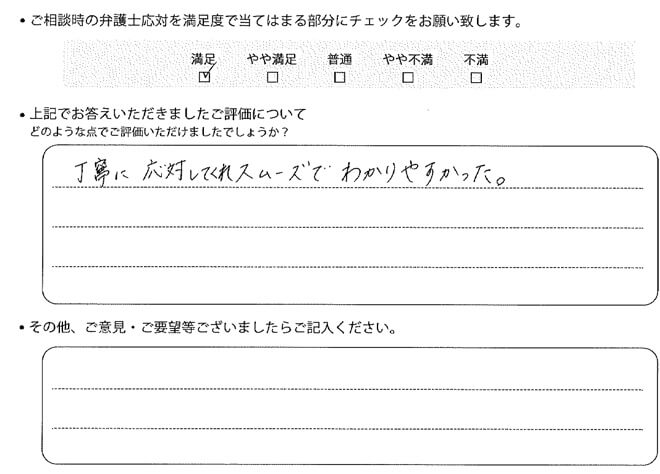 • ご相談時の弁護士応対を満足度で当てはまる部分にチェックをお願い致します。
満足 やや満足 普通 やや不満 不満
☑ ☐ ☐ ☐ ☐
• 上記でお答えいただきましたご評価について
どのような点でご評価いただけましたでしょうか？
丁寧に応対してくれスムーズでわかりやすかった。
• その他、ご意見・ご要望等ございましたらご記入ください。